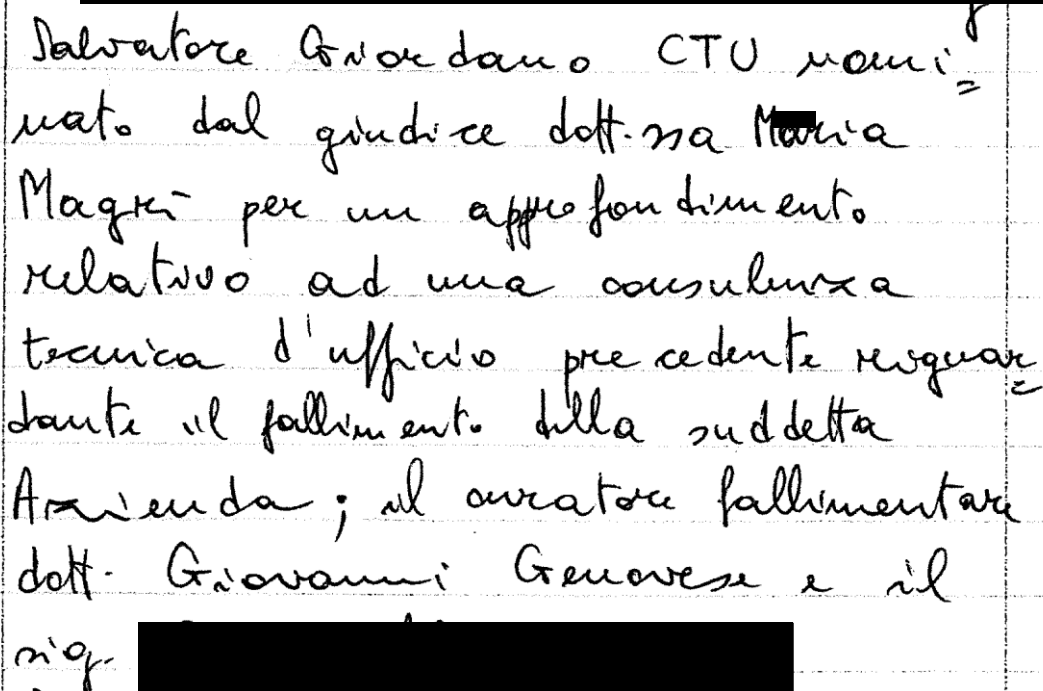 Salvatore Giordano CTU nomi=
nato dal giudice dott.ssa Maria
Magrì per un approfondimento
relativo ad una consulenza
tecnica d'ufficio precedente riguar=
dante il fallimento della suddetta
Azienda; il curatore fallimentare
dott. Giovanni Genovese e il
sig.